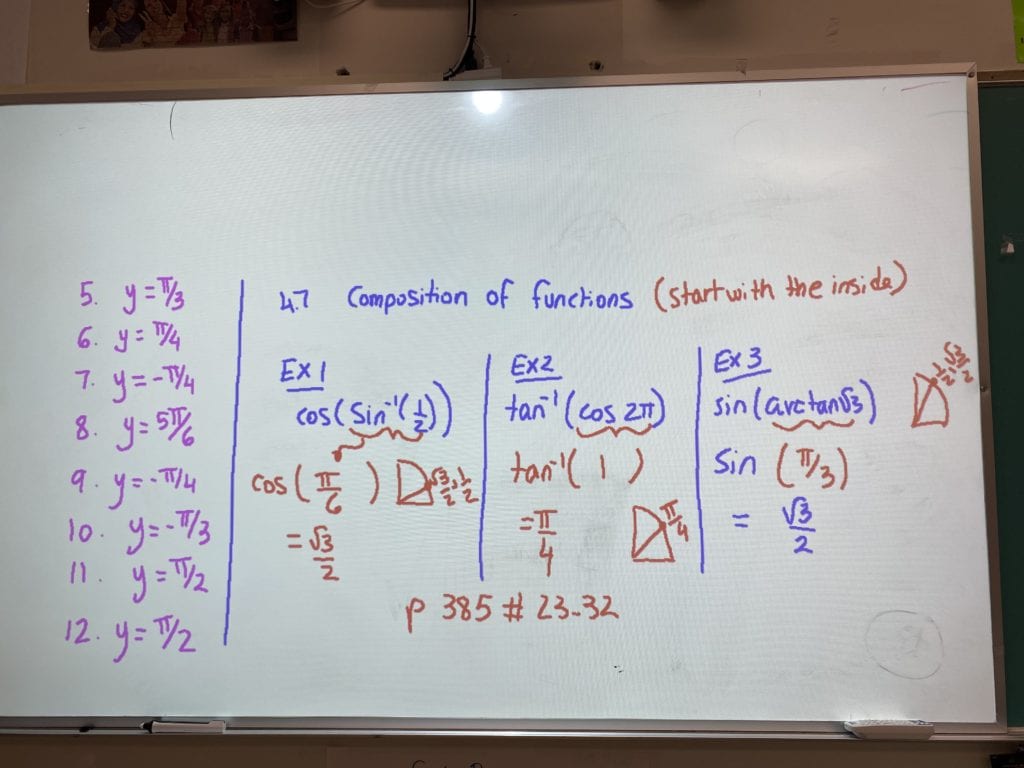 5. y = π/3
6. y = π/4
7. y = -π/4
8. y = 5π/6
9. y = -π/4
10. y = -π/3
11. y = π/2
12. y = π/2
4.7 Composition of functions (start with the inside)
Ex 1
cos(sin⁻¹(1/2))
cos(π/6) √3/2, 1/2
= √3/2
Ex 2
tan⁻¹(cos 2π)
tan⁻¹( 1 )
= π/4 π/4
Ex 3
sin(arctan√3) 1/2, √3/2
sin (π/3)
= √3/2
p 385 # 23-32